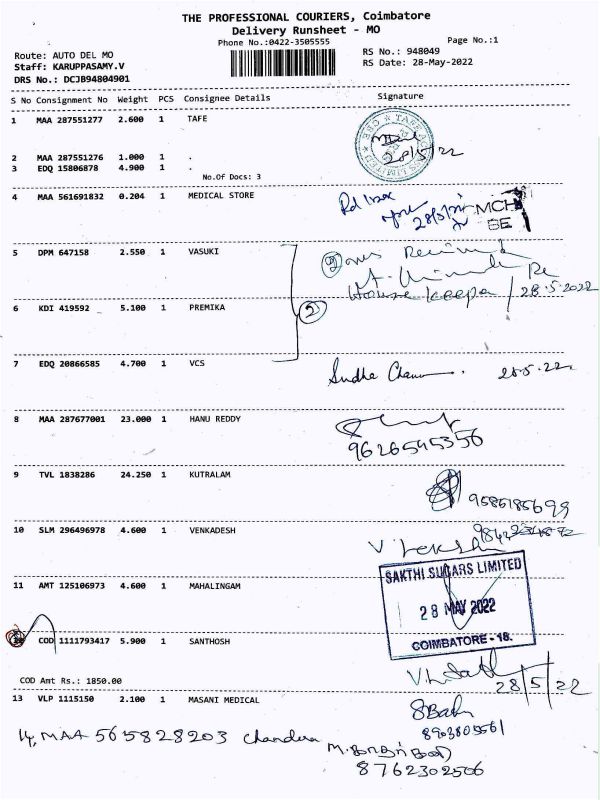 THE PROFESSIONAL COURIERS, Coimbatore
Delivery Runsheet - MO
Phone No.:0422-3505555
Page No.:1
Route: AUTO DEL MO
RS No.: 948049
Staff: KARUPPASAMY.V
RS Date: 28-May-2022
DRS No.: DCJB94804901
S No Consignment No Weight PCS Consignee Details Signature
1 MAA 287551277 2.600 1 TAFE
28/5/22
2 MAA 287551276 1.000 1 .
3 EDQ 15806878 4.900 1 .
No.Of Docs: 3
4 MAA 561691832 0.204 1 MEDICAL STORE
MCH
5 DPM 647158 2.550 1 VASUKI
House keeper 28.5.2022
6 KDI 419592 5.100 1 PREMIKA
2
7 EDQ 20866585 4.700 1 VCS
28.5.22
8 MAA 287677001 23.000 1 HANU REDDY
9626545356
9 TVL 1838286 24.250 1 KUTRALAM
9585185699
10 SLM 296496978 4.600 1 VENKADESH
SAKTHI SUGARS LIMITED
11 AMT 125106973 4.600 1 MAHALINGAM
28 MAY 2022
COIMBATORE - 18.
COD 1111793417 5.900 1 SANTHOSH
COD Amt Rs.: 1850.00
28/5/22
13 VLP 1115150 2.100 1 MASANI MEDICAL
14, MAA 565828203
8762302506